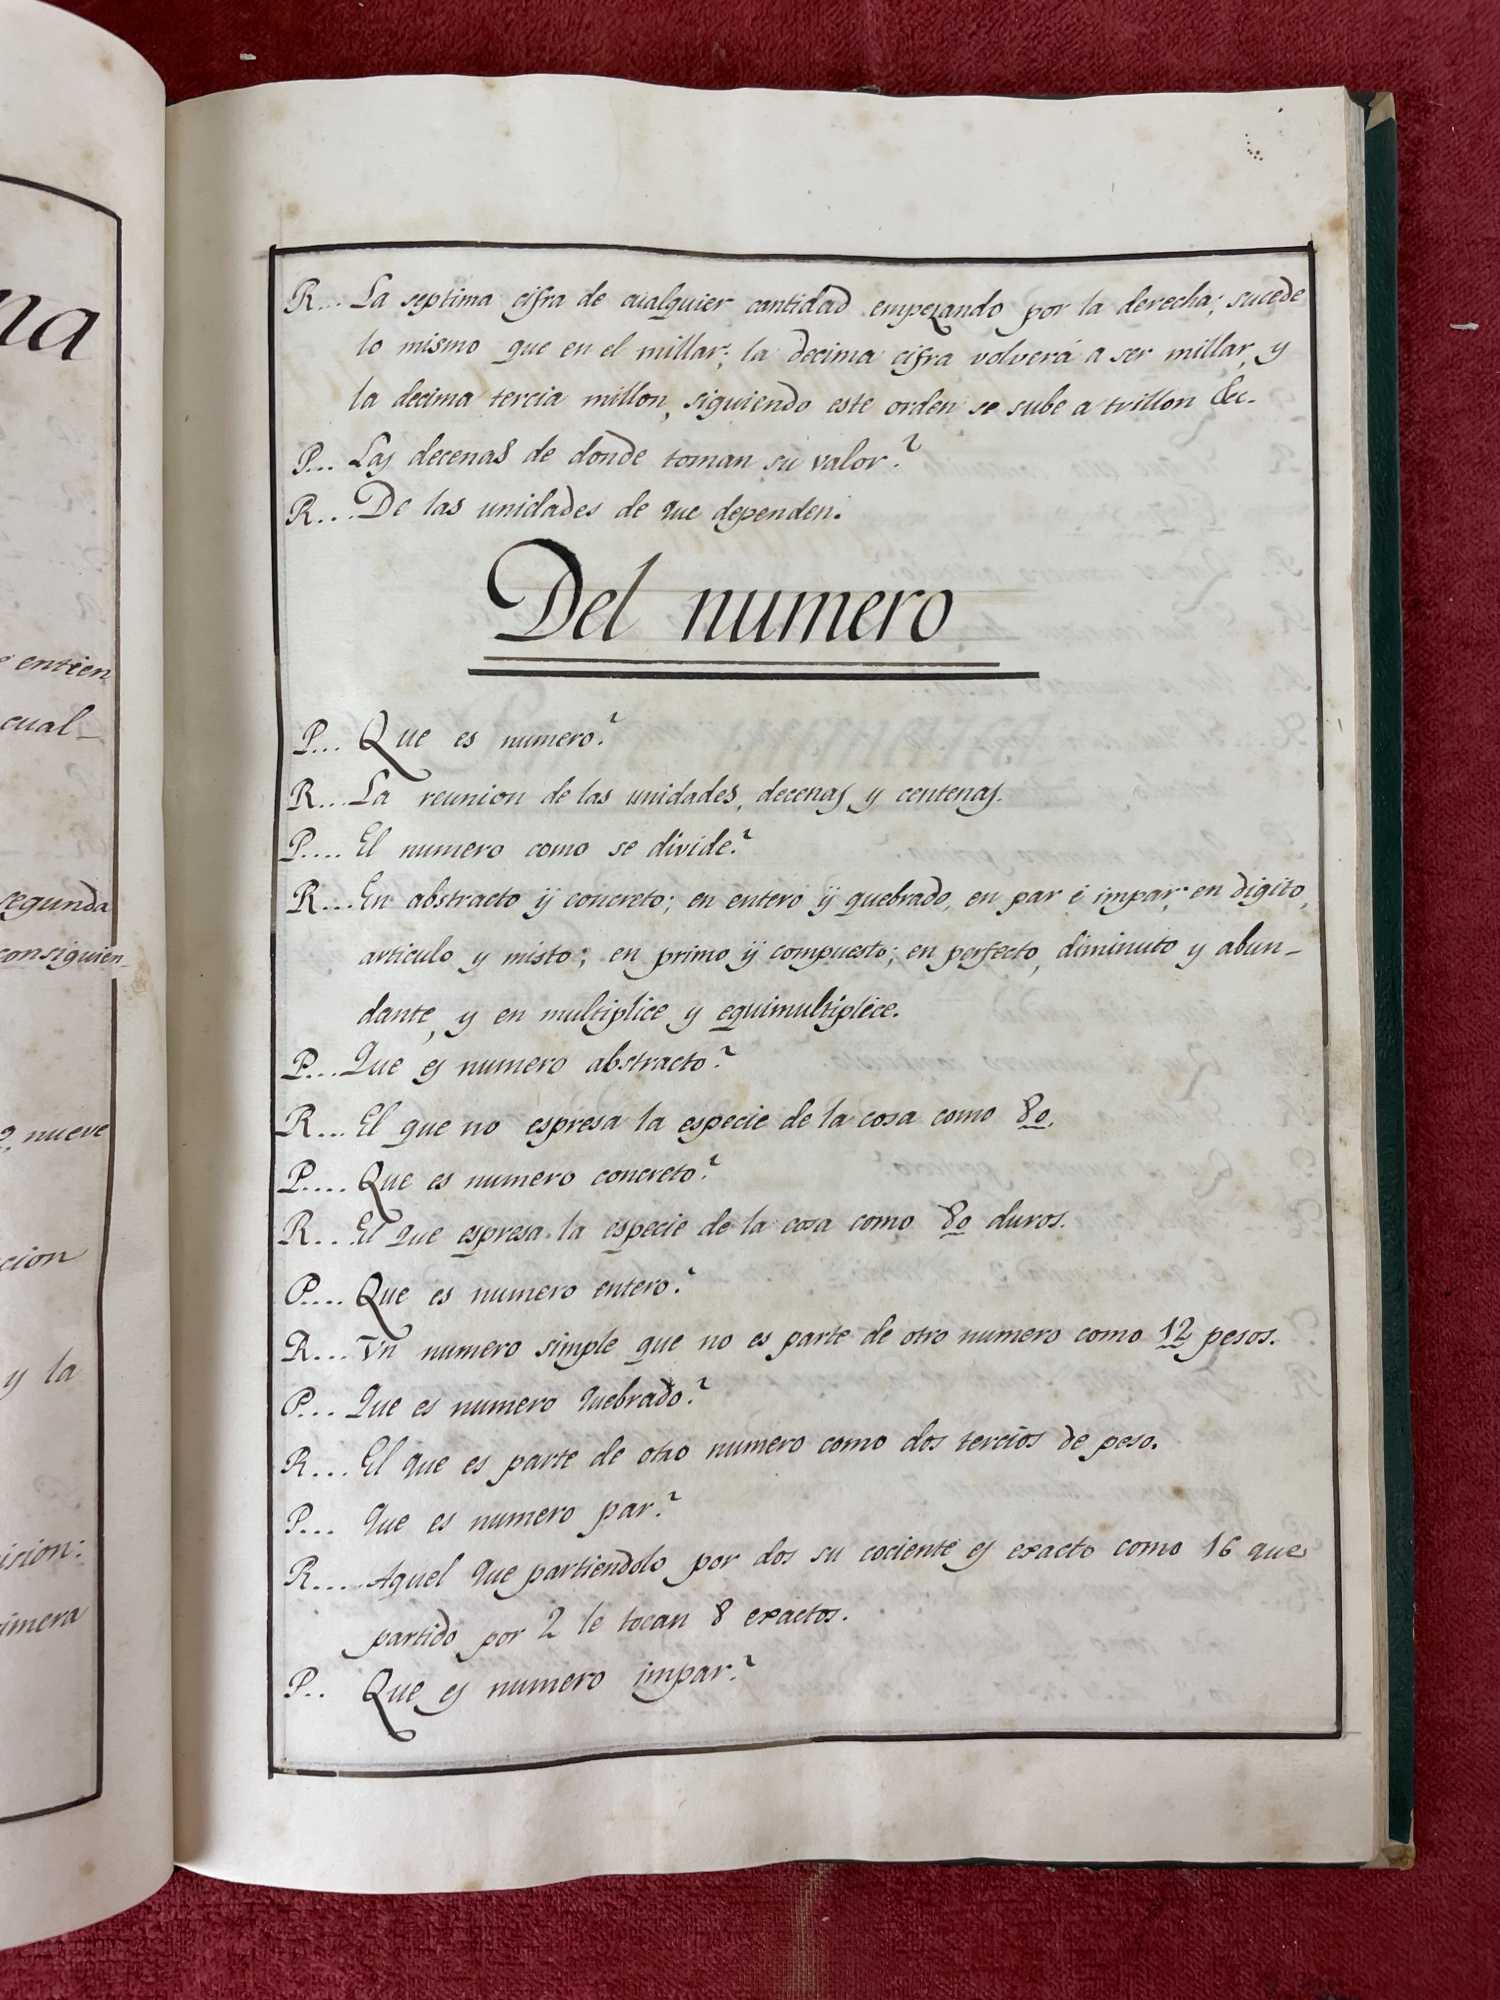 na
entien
cual-
segunda
consiguien-
nueve
cion
y la
ision:
imera
R... La septima cifra de cualquier cantidad empezando por la derecha; sucede
lo mismo que en el millar; la decima cifra volverá a ser millar, y
la decima tercia millon, siguiendo este orden se sube a trillon &c.
P... Las decenas de donde toman su valor?
R... De las unidades de que dependen.
Del numero
P... Que es numero?
R... La reunion de las unidades, decenas y centenas.
P.... El numero como se divide?
R... En abstracto ÿ concreto; en entero ÿ quebrado, en par é impar; en digito,
articulo y misto; en primo ÿ compuesto; en perfecto, diminuto y abun-
dante, y en multiplice y equimultiplice.
P... Que es numero abstracto?
R... El que no espresa la especie de la cosa como 80.
P.... Que es numero concreto?
R... El que espresa la especie de la cosa como 80 duros.
P.... Que es numero entero?
R... Un numero simple que no es parte de otro numero como 12 pesos.
P... Que es numero quebrado?
R... El que es parte de otro numero como dos tercios de peso.
P... Que es numero par?
R..... Aquel que partiendolo por dos su cociente es exacto como 16 que
partido por 2 le tocan 8 exactos.
P.. Que es numero impar?